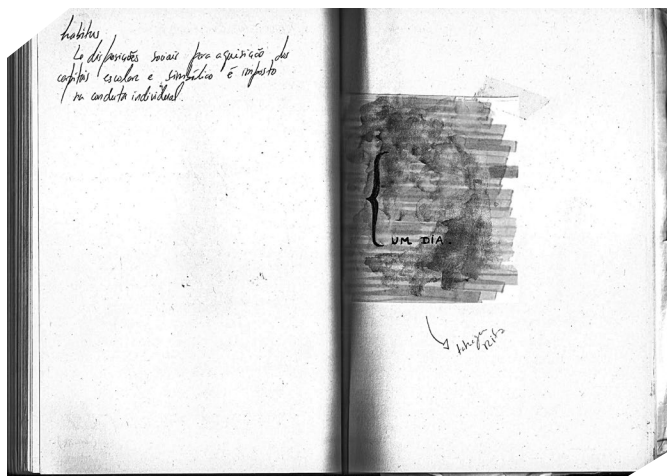 habitus
↳ disposições sociais para aquisição dos
capitais escolar e simbólico é imposto
na conduta individual.
UM DIA.